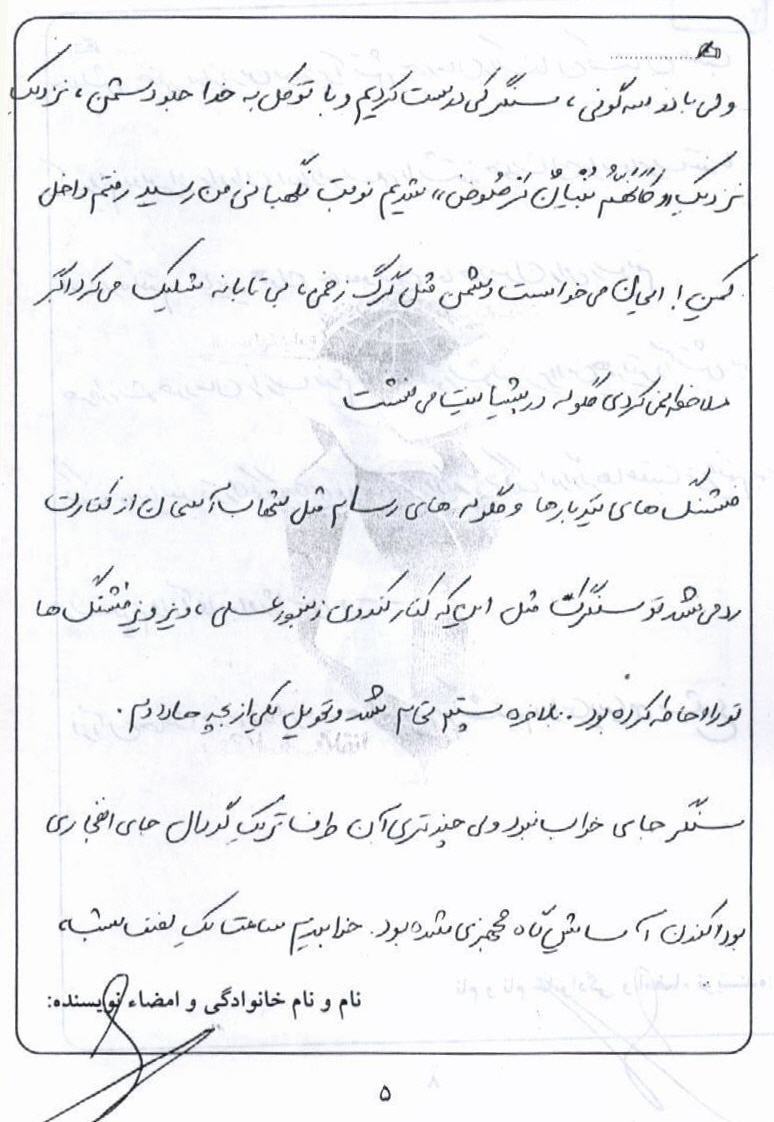 ولی با دو سه گونی، سنگرکی درست کردیم و با توکل به خدا جلو دشمن، نزدیک
نزدیک «و کَأَنَّهُم بُنیانٌ مَرصُوص» شدیم نوبت نگهبانی من رسید رفتم داخل
کمین! امان می‌خواست دشمن مثل گرگ زخمی، بی تابانه شلیک می‌کرد اگر
ملاحظه نمی‌کردی گلوله در پیشانیت می‌نشست
فشنگ های تیربارها و گلوله های رسام مثل شهاب آسمان از کنارت
رد می‌شد تو سنگرک مثل این که کنار کندوی زنبور عسلی، ویز ویز فشنگ ها
تو را احاطه کرده بود. بلاخره پستم تمام شد و تحویل یکی از بچه ها دادم.
سنگر جای خواب نبود ولی چند متری آن طرف ترک گودال های انفجاری
بود اکنون آسایش گاه مجهزی شده بود. خوابیدم ساعت یک نصف شبه
نام و نام خانوادگی و امضاء نویسنده:
۵